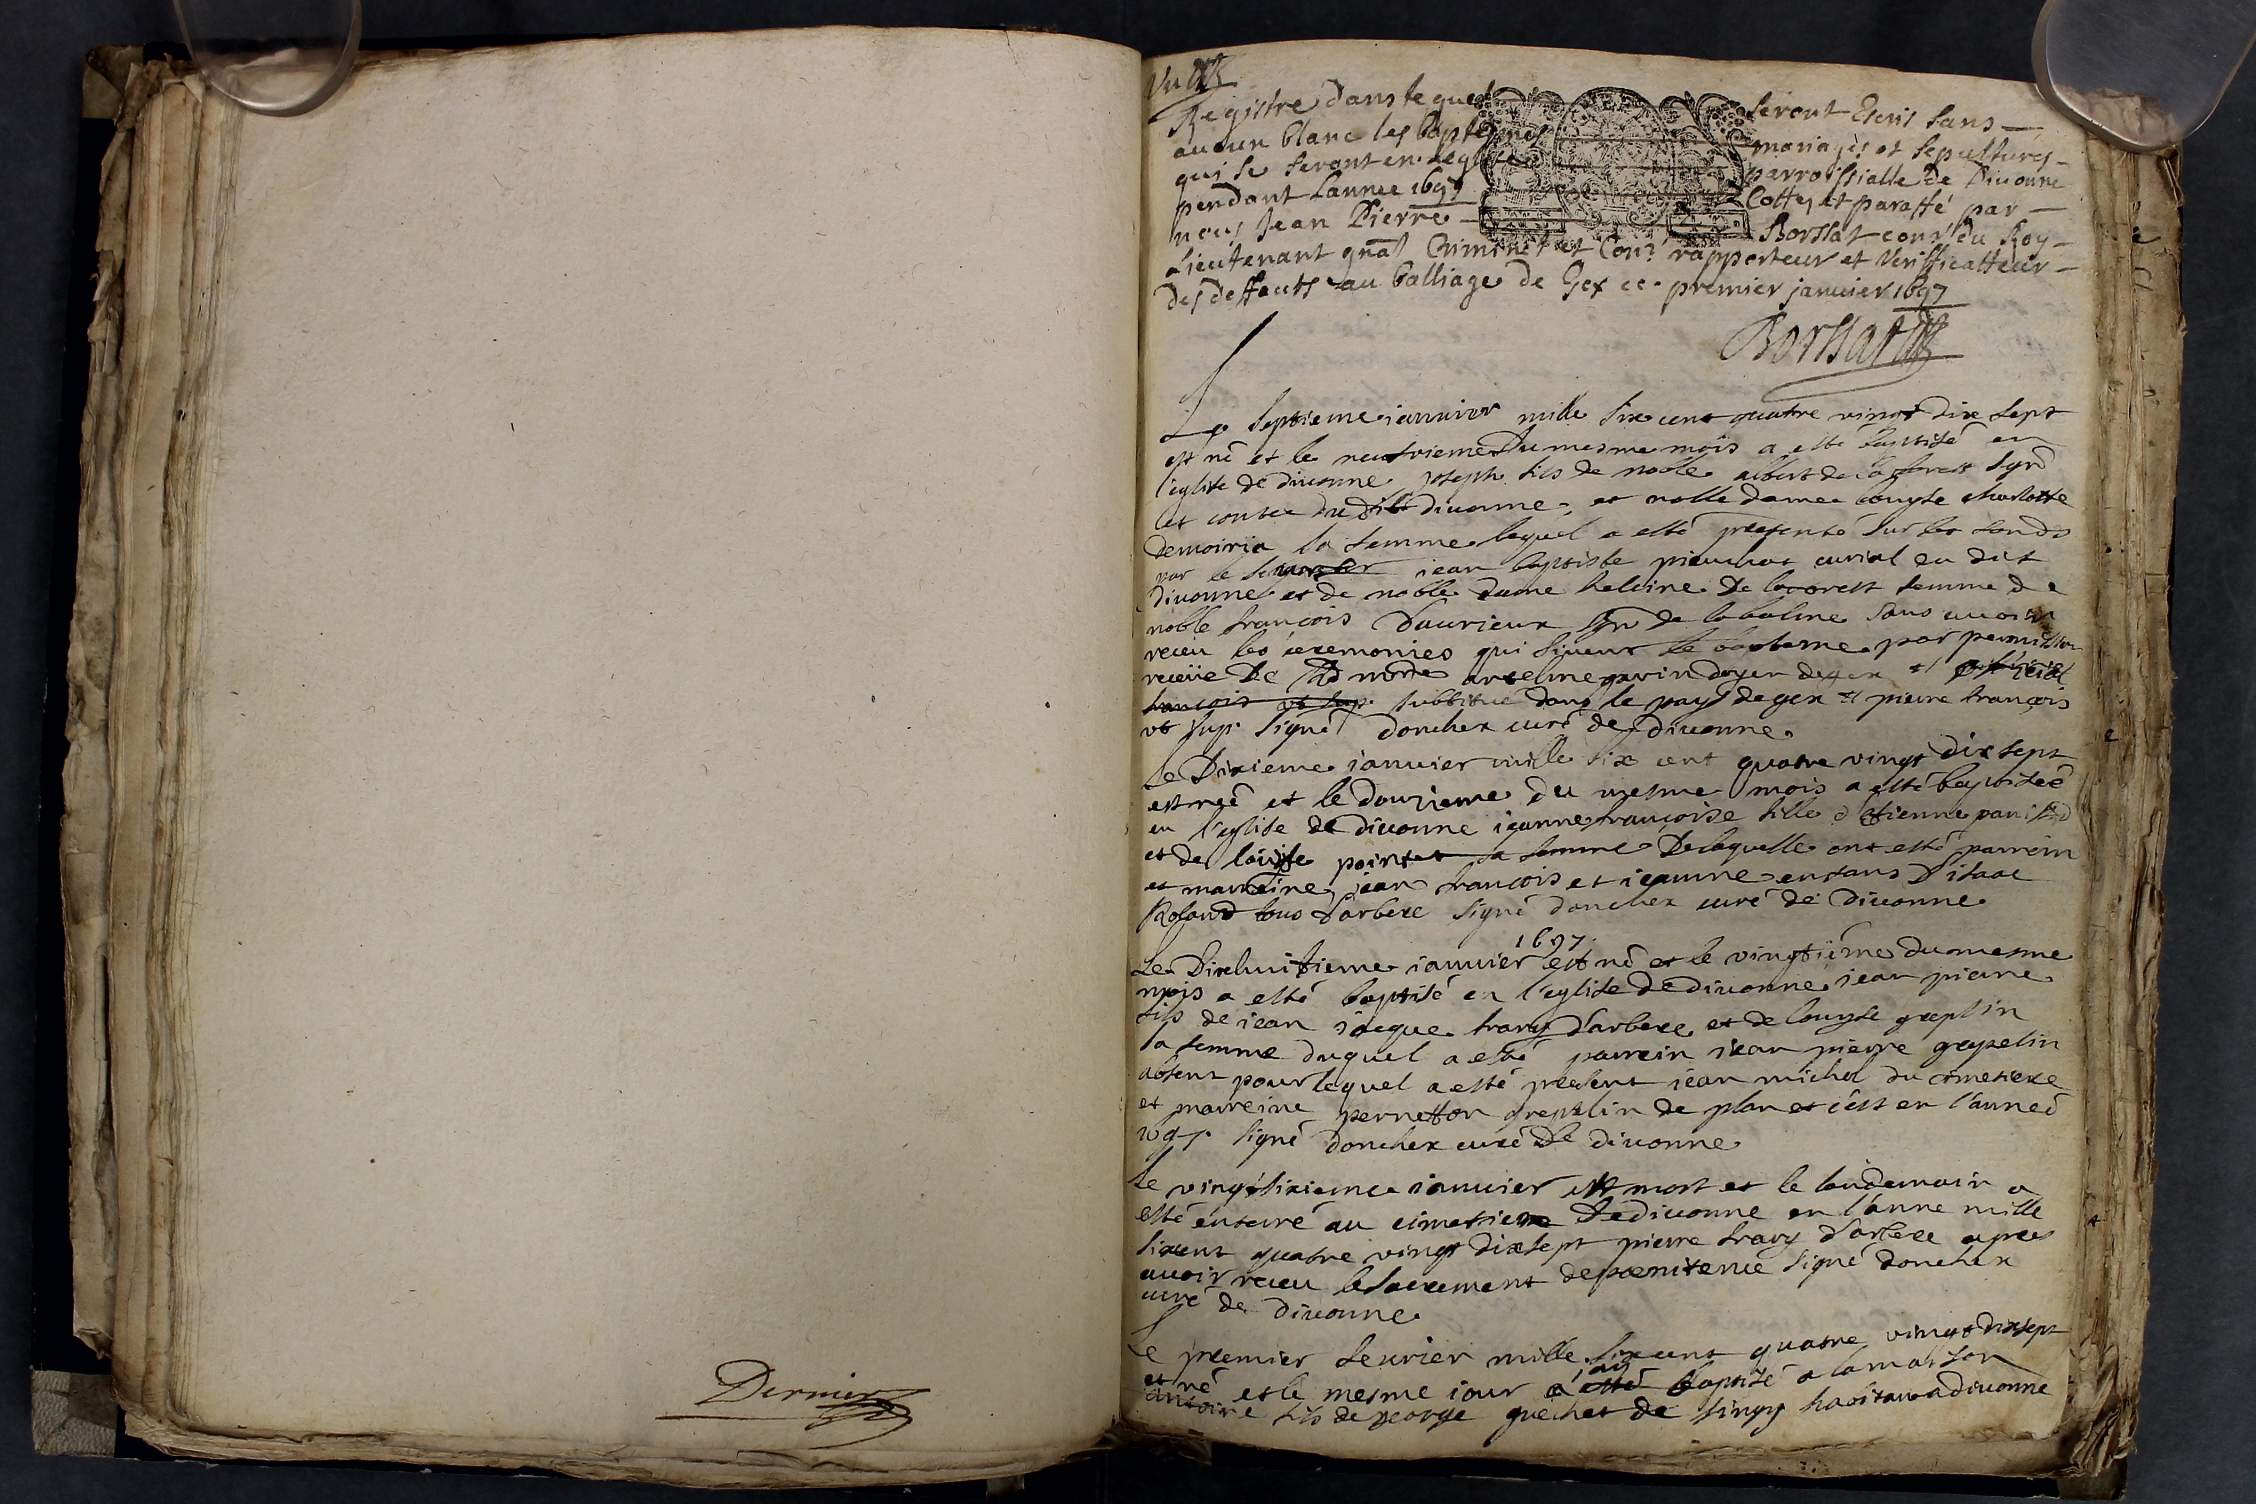 Dernier
Registre dans lequel seront Escris sans
aucun blanc les baptesmes mariages et sepultures
qui se feront en leglise parroissialle de Diuonne
pendant Lannee 1697 Cotté et paraffé par
nous Jean Pierre Borssat conr du Roy
Lieutenant gnal Criminel et Conr rapporteur et Veriffcatteur
des deffauts au balliage de Gex ce premier januier 1697
Borssat
Le septieme ianuier mille six cent quatre vingt dix sept
est né et le neufvieme du mesme mois a esté baptisé en
l'eglise de diuonne joseph fils de noble albert de la forest sgnr
et conte du dit diuonne, et noble dame louyse charlotte
demoiria sa femme lequel a esté presenté sur les fonds
par le jean baptiste curial du dit
diuonne et de noble dame de laforest femme de
noble françois daurieux sgnr de labalme sans auoir
receu les ceremonies qui siuent le bapteme par permission
receüe de anselme doyen de gex et official
françois vt sup substitué dans le pays de gex et pierre françois
vt sup. signé donchex curé de Diuonne
Le Dixieme ianuier mille six cent quatre vingt dix sept
est neé et le douzieme du mesme mois a esté baptiseé
en l'eglise de diuonne ieanne françoise fille d etienne panissod
et de louise pointet sa femme De laquelle ont esté parrein
et marreine jean françois et ieanne enfans d'isaac
Roland tous d'arbere signé donchex curé de Diuonne
1697
Le Dixhuitieme ianuier est né et le vingtiéme du mesme
mois a esté baptisé en l'eglise de diuonne iean pierre
fils de iean iacque travy d'arbere et de louyse greplin
sa femme duquel a esté parrein iean pierre grepelin
absent pour lequel a esté present iean michel du cimetiere
et marreine pernetton grepelin de plan et c'est en l'anneé
1697. signé donchex curé De diuonne
Le vingtsixieme ianuier est mort et le landemain a
esté enterré au cimetiere De diuonne en l'anne mille
sixcent quatre vingt dixsept pierre travy d'arbere apres
auoir receu le sacrement de poenitence signé donchex
curé de diuonne
Le premier feurier mille sixcent quatre vingt dixsept
est né et le mesme iour a esté baptisé a la maison
antoine fils de george quechet de singy habitant a diuonne